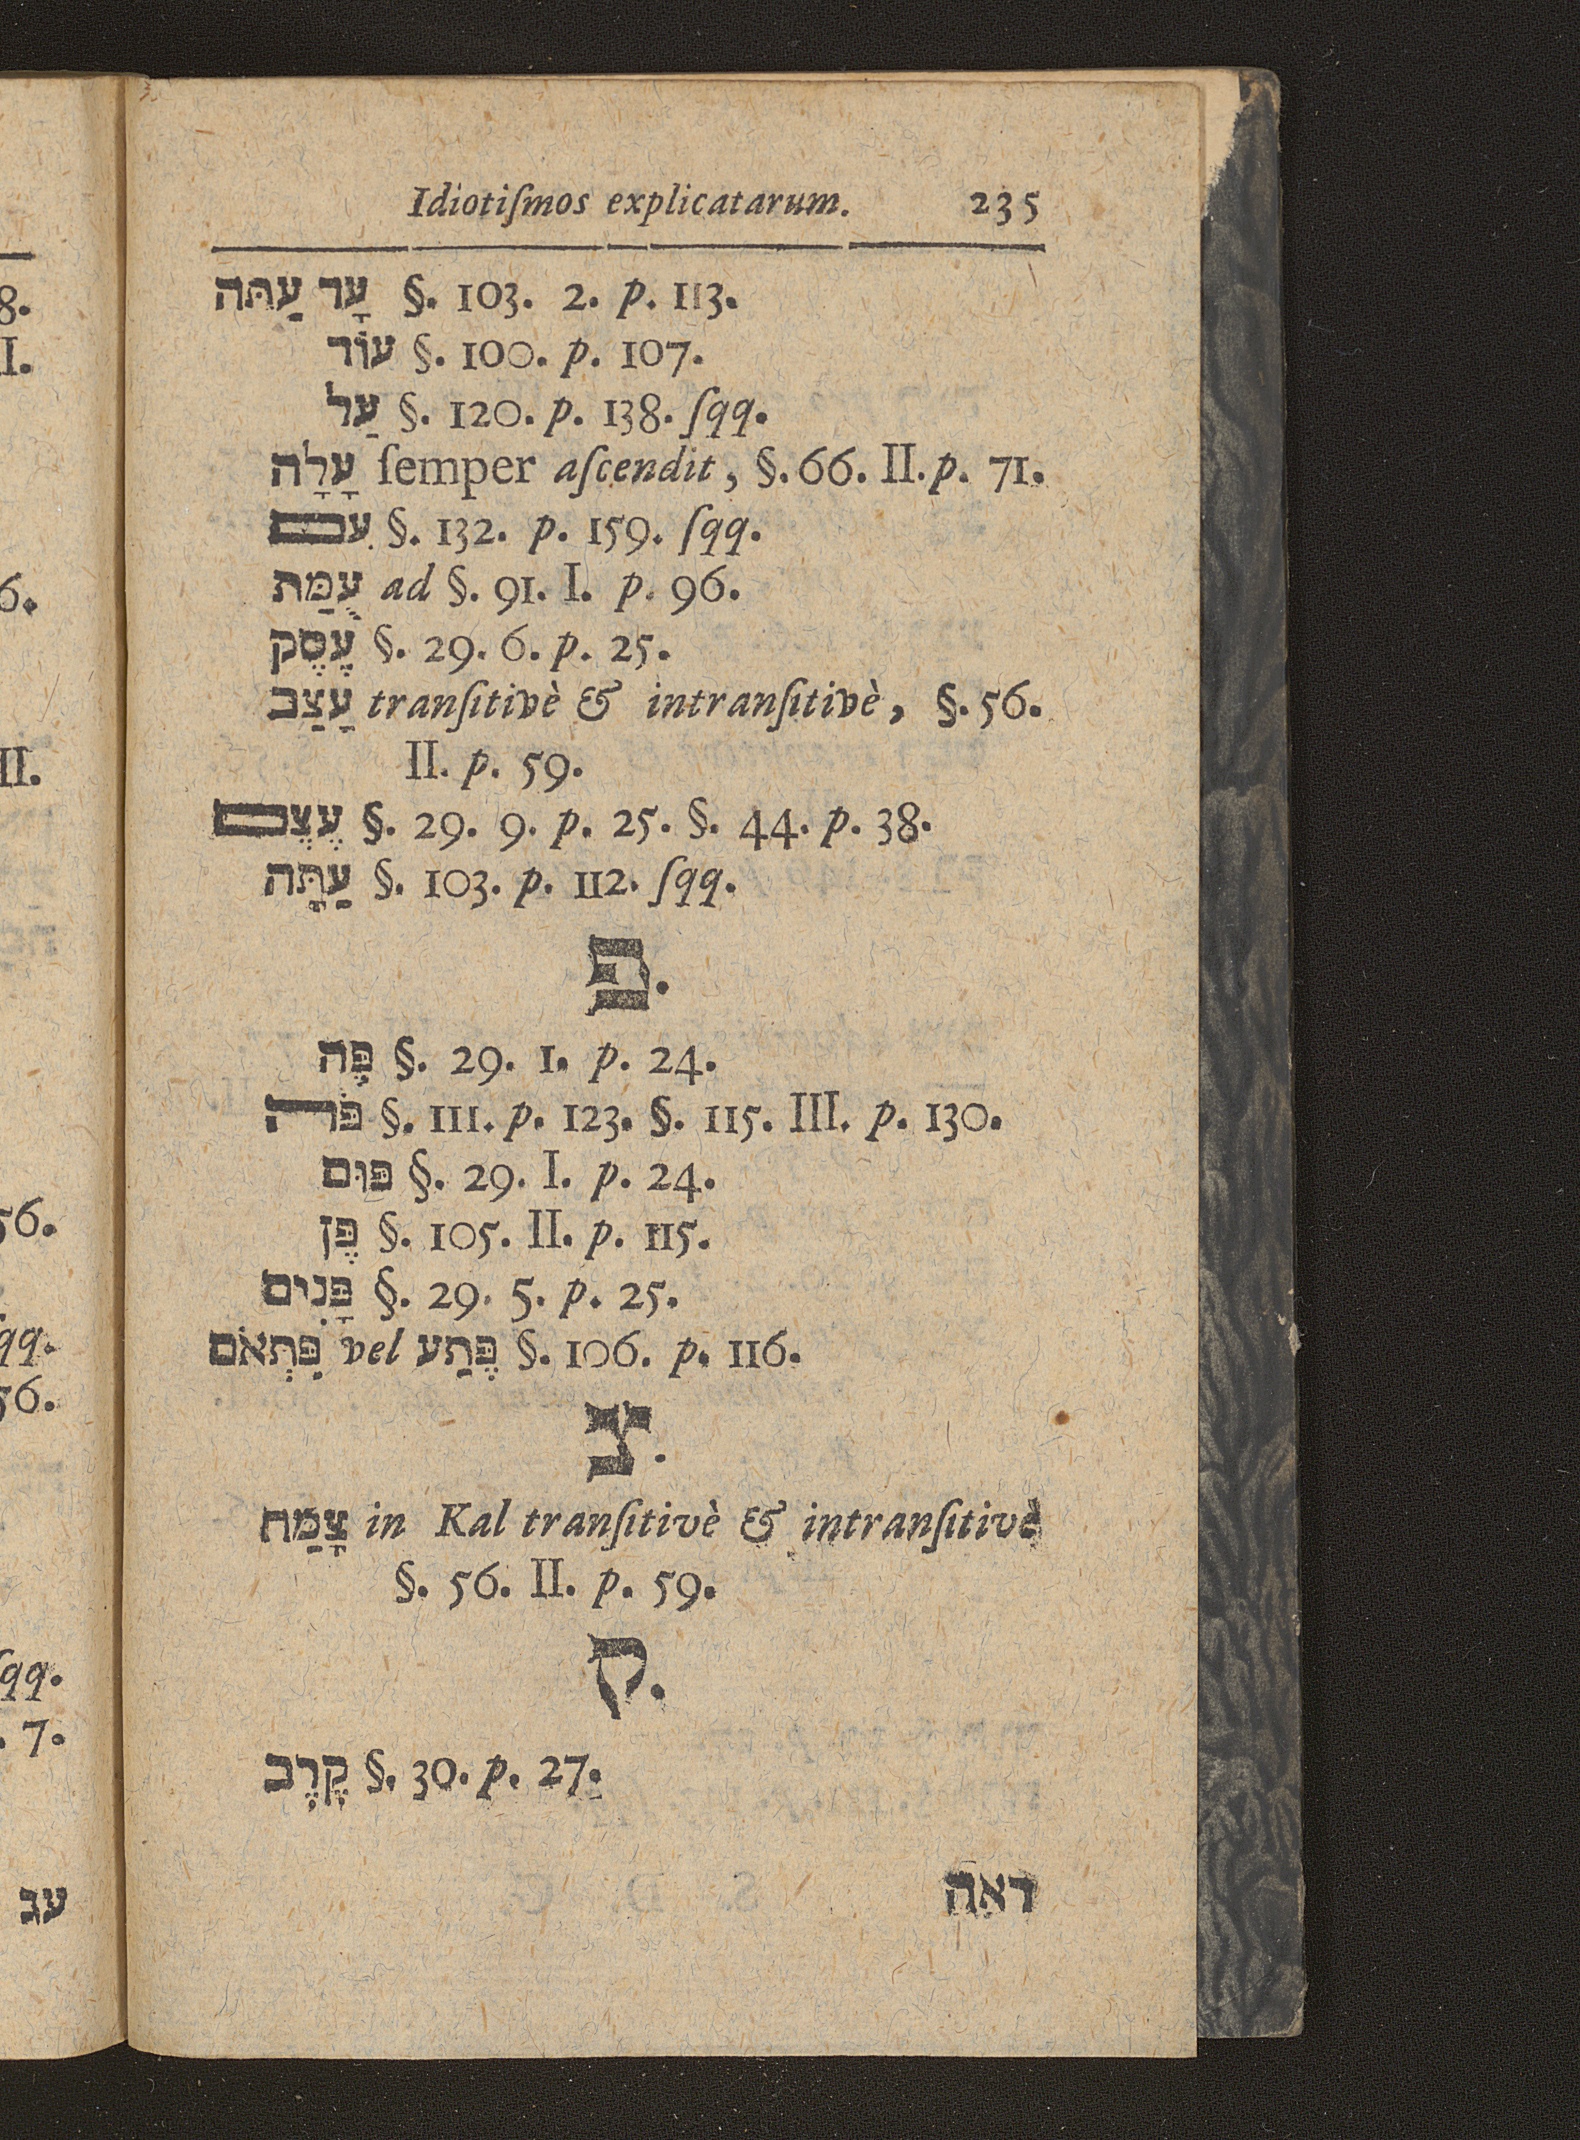 Idiotiſmos explicatarum. 235
עָד עַתּה §. 103. 2. p. 113.
עוֹד §. 100. p. 107.
עַל §. 120. p. 138. ſqq.
עָלָה ſemper aſcendit, §. 66. II. p. 71.
עִם §. 132. p. 159. ſqq.
עֻמַּת ad §. 91. I. p. 96.
עֶסֶק §. 29. 6. p. 25.
עָצַב tranſitivè & intranſitivè, §. 56.
II. p. 59.
עֶצֶם §. 29. 9. p. 25. §. 44. p. 38.
עַתָּה §. 103. p. 112. ſqq.
פ.
פֶּה §. 29. 1. p. 24.
פֹּה §. 111. p. 123. §. 115. III. p. 130.
פּוּם §. 29. I. p. 24.
פֶּן §. 105. II. p. 115.
פָּנִים §. 29. 5. p. 25.
פִּתְאֹם vel פֶּתַע §. 106. p. 116.
צ.
צָמַח in Kal tranſitivè & intranſitivè
§. 56. II. p. 59.
ק.
קֶרֶב §. 30. p. 27.
ראה
8.
I.
6.
II.
56.
qq.
56.
ſqq.
. 7.
עב